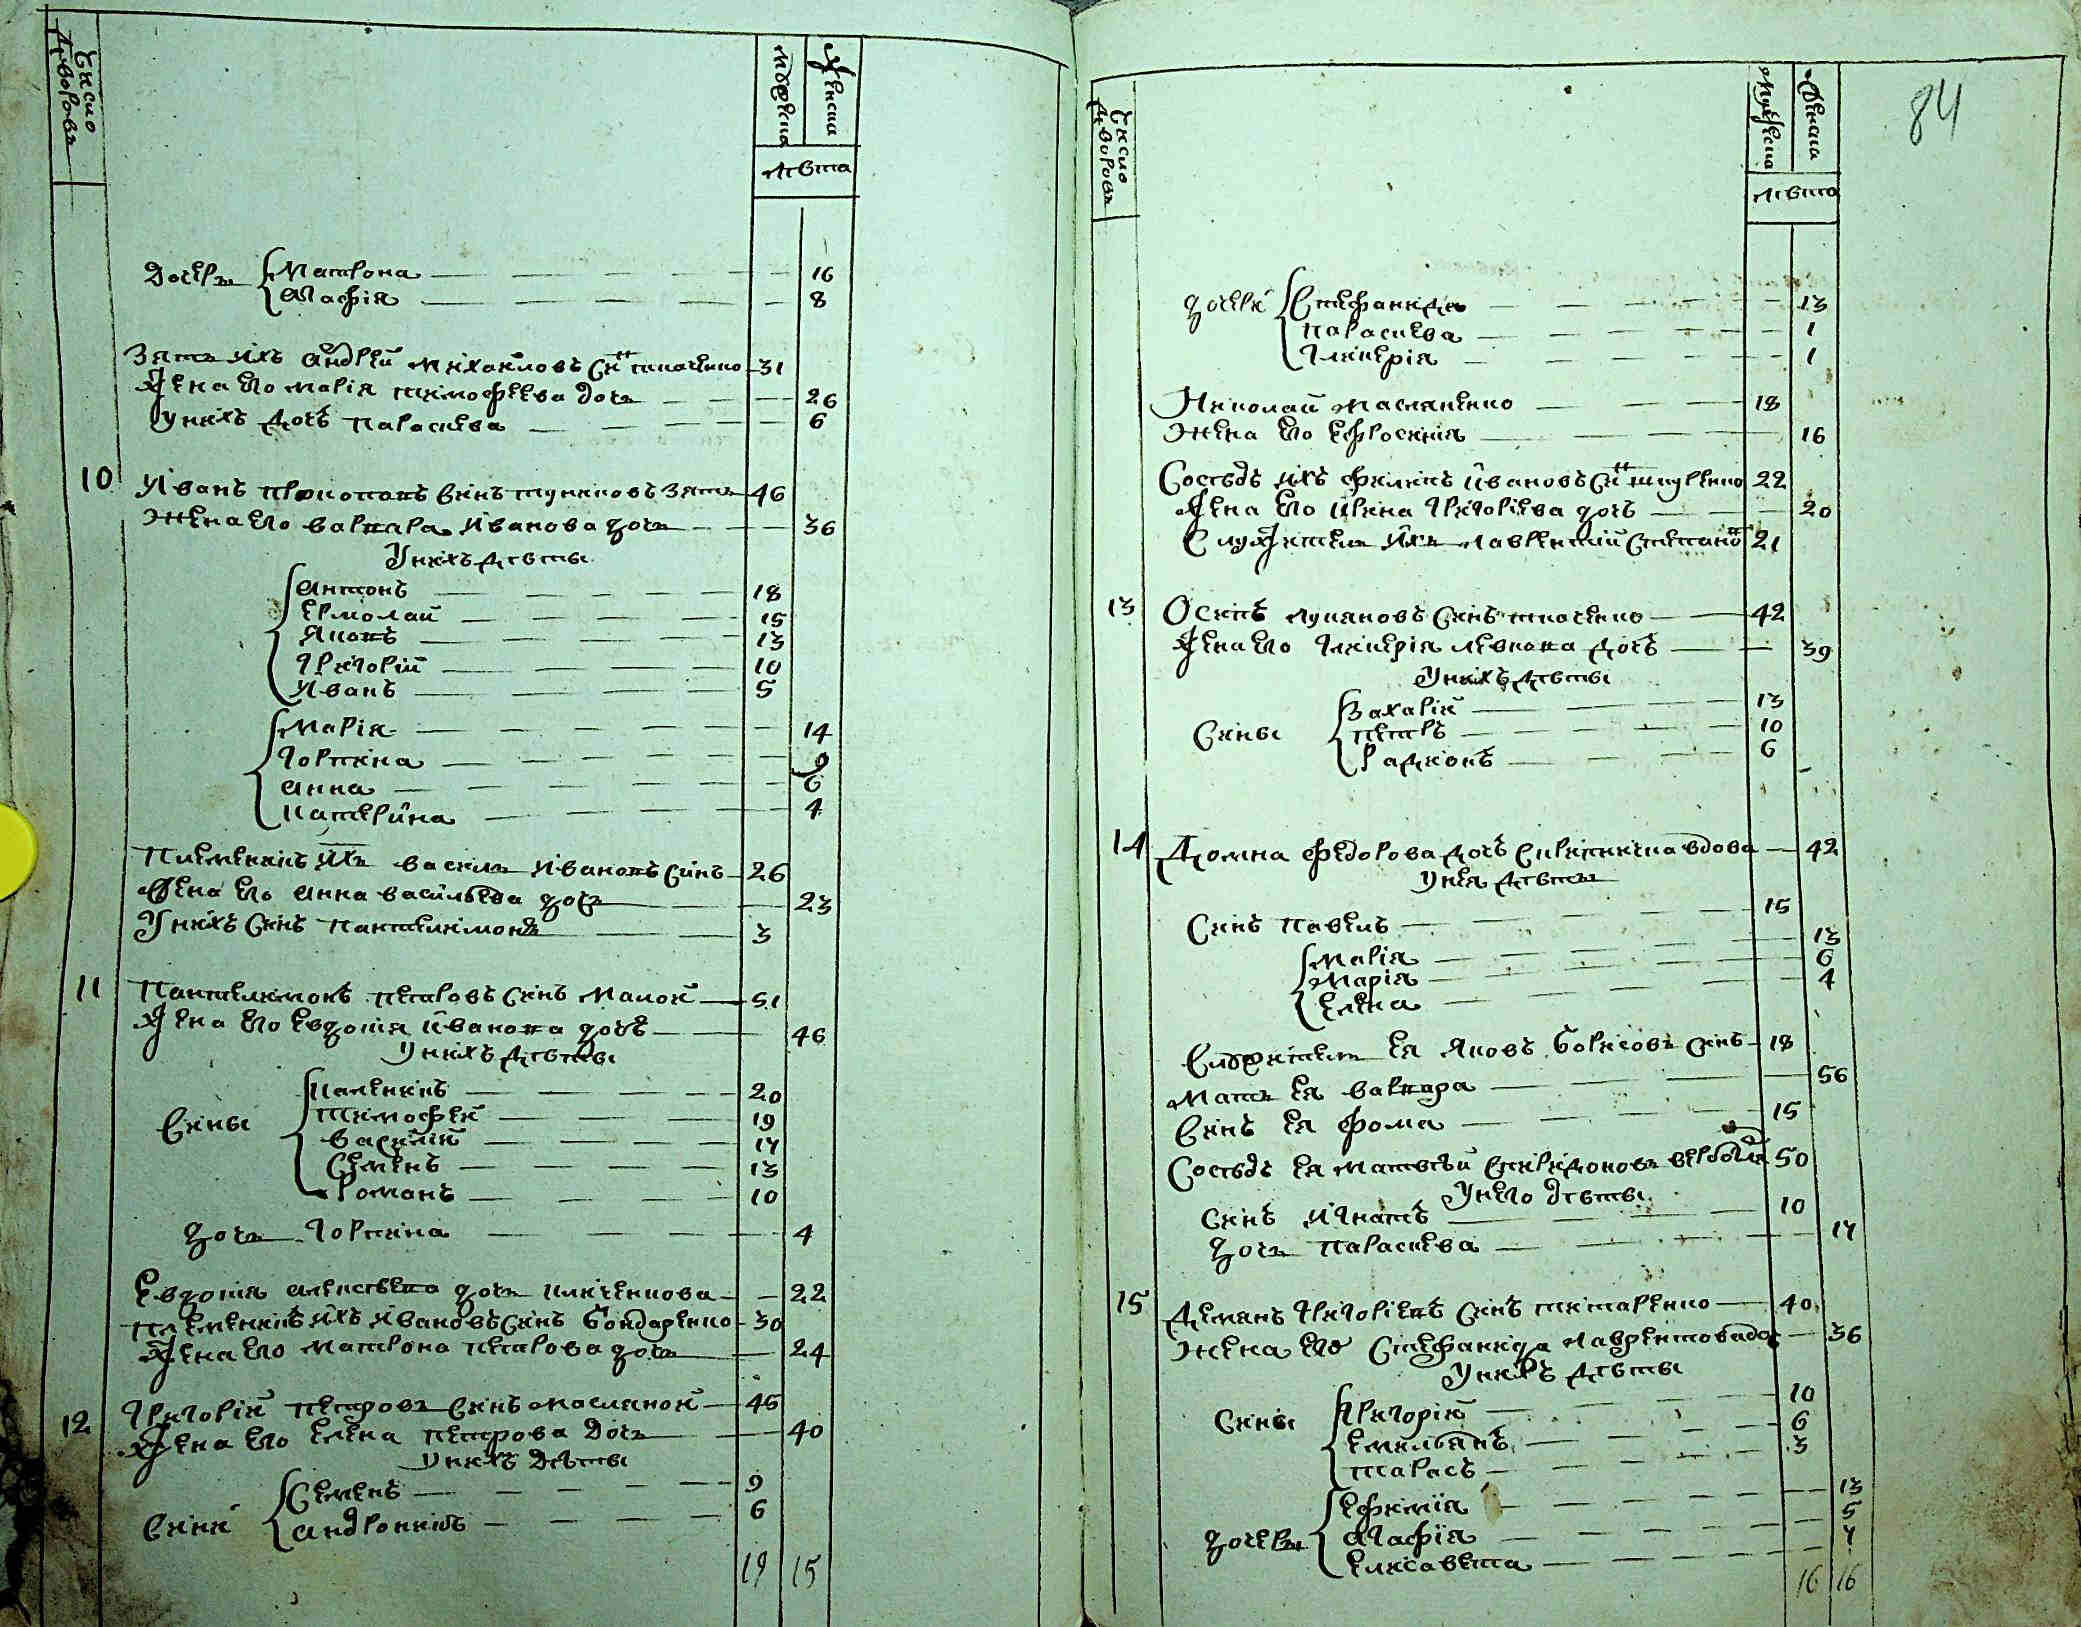 Число дворовъ
мужеска
женска
лѣта
Дочери Матрона 16
Агафія 8
Зять ихъ андрей михаиловъ снъ ткаченко 31
Жена его марія тимофеева дочь 26
У нихъ дочь параскева 6
10 Иванъ прокоповъ синъ зять 46
Жена его варвара Иванова дочь 36
У нихъ дѣти
антонъ 18
Ермолай 15
Яковъ 13
Григорій 10
Иванъ 5
Марія 14
Горпина 9
анна 6
катерина 4
Племеникъ ихъ василь Ивановъ синъ 26
Жена его анна василева дочь 23
У нихъ синъ пантелимонъ 3
11 Пантелимонъ петровъ синъ 51
Жена его Евдокія иванова дочь 46
У нихъ дѣти
Сини Каленикъ 20
Тимофей 19
василій 17
Семенъ 13
Романъ 10
дочь Горпина 4
Евдокія алексѣева дочь 22
племеникъ ихъ ивановъ синъ бондаренко 30
Жена его матрона петрова дочь 24
12 Григорій петровъ синъ маслакой 45
Жена его Елена петрова дочь 40
У нихъ дѣти
Сини Семенъ 9
андроникъ 6
19 15
84
Число дворовъ
мужеска
женска
лѣта
дочери Стефанида 13
параскева 1
Гликерія 1
Николай маслакенко 18
Жена его Ефросинія 16
Сосѣдъ ихъ филипъ ивановъ снъ 22
Жена его ирина Григоріева дочь 20
Служитель ихъ лаврентий степановъ 21
13 Осипъ лукяновъ синъ ткаченко 42
Жена его Гликерія левкова дочь 39
У нихъ дѣти
Сини Захарій 13
петръ 10
Радионъ 6
14 Домна федорова дочь вдова 42
У нея дѣти
Синъ павелъ 15
Марія 13
Марія 6
Елена 4
Служитель Ея Яковъ борисовъ синъ 18
Мать Ея варвара 56
Синъ Ея фома 15
Сосѣдъ Ея матвѣй спиридоновъ 50
У него дѣти
Синъ Игнатъ 10
дочь параскева 17
15 Демянъ Григоріевъ синъ титаренко 40
Жена его Стефанида лаврентова дочь 36
У нихъ дѣти
Сини Григорій 10
Емельянъ 6
тарасъ 3
дочери Ефимія 13
Агафія 5
Елисавета 4
16 16